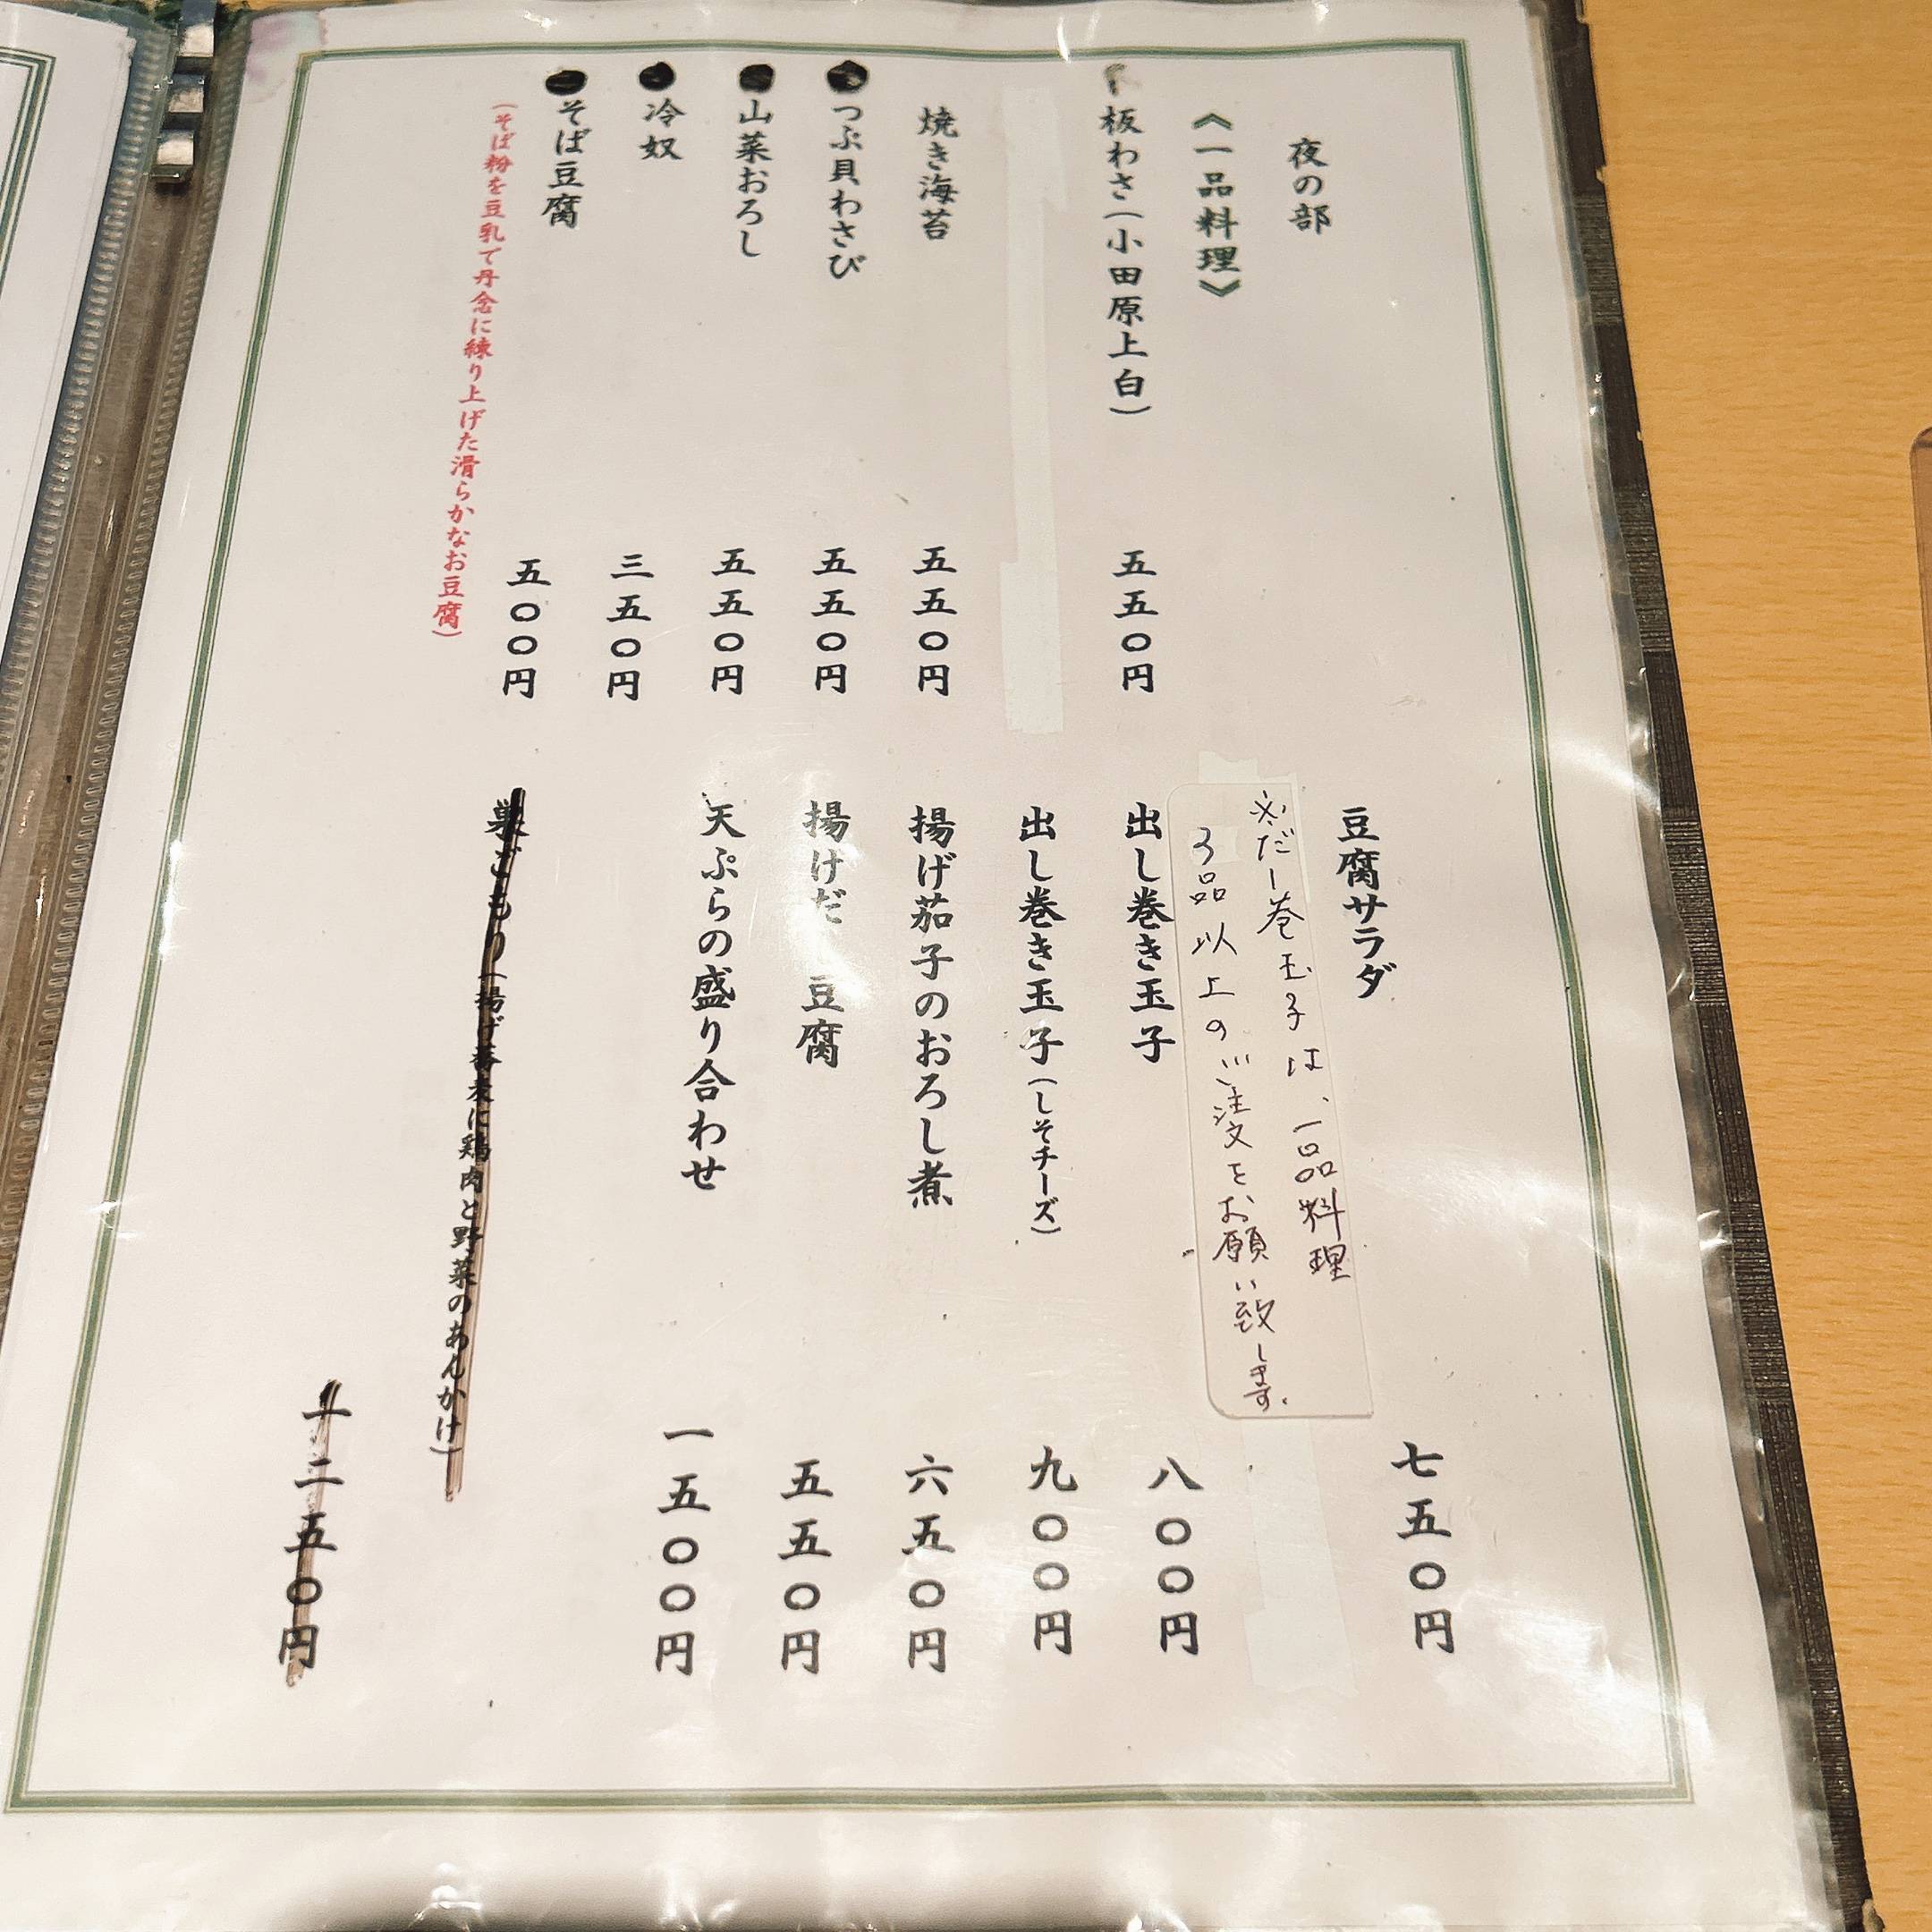 夜の部
《一品料理》
板わさ(小田原上白) 五五〇円
焼き海苔 五五〇円
つぶ貝わさび 五五〇円
山菜おろし 五五〇円
冷奴 三五〇円
そば豆腐 五〇〇円
(そば粉を豆乳で丹念に練り上げた滑らかなお豆腐)
豆腐サラダ 七五〇円
※だし巻玉子は、一品料理
3品以上のご注文をお願い致します。
出し巻き玉子 八〇〇円
出し巻き玉子(しそチーズ) 九〇〇円
揚げ茄子のおろし煮 六五〇円
揚げだし豆腐 五五〇円
天ぷらの盛り合わせ 一五〇〇円
巣ごもり(揚げ蕎麦に鶏肉と野菜のあんかけ)
一二五〇円